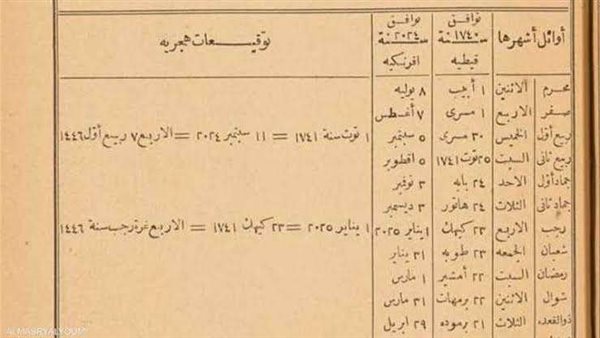 أوائل أشهرها توافق سنة ١٧٤٠ قبطيه توافق سنة ٢٠٢٤ افرنكيه توقيعات هجريه
محرم الاثنين ١ أبيب ٨ يوليه
صفر الاربع ١ مسرى ٧ أغسطس
ربيع أول الخميس ٣٠ مسرى ٥ سبتمبر ١ توت سنة ١٧٤١ = ١١ سبتمبر ٢٠٢٤ = الاربع ٧ ربيع أول ١٤٤٦
ربيع تانى السبت ٢٥ توت ١٧٤١ ٥ اقطوبر
جماد أول الاحد ٢٤ بابه ٣ نوفبر
جماد تانى الثلاث ٢٤ هاتور ٣ ديسمبر
رجب الاربع ٢٣ كيهك ١ يناير ٢٠٢٥ ١ يناير ٢٠٢٥ = ٢٣ كيهك ١٧٤١ = الاربع غرة رجب سنة ١٤٤٦
شعبان الجمعه ٢٣ طوبه ٣١ يناير
رمضان السبت ٢٢ أمشير ١ مارس
شوال الاثنين ٢٢ برمهات ٣١ مارس
ذوالقعده الثلاث ٢١ برموده ٢٩ ابريل
ALMASRYALYOUM